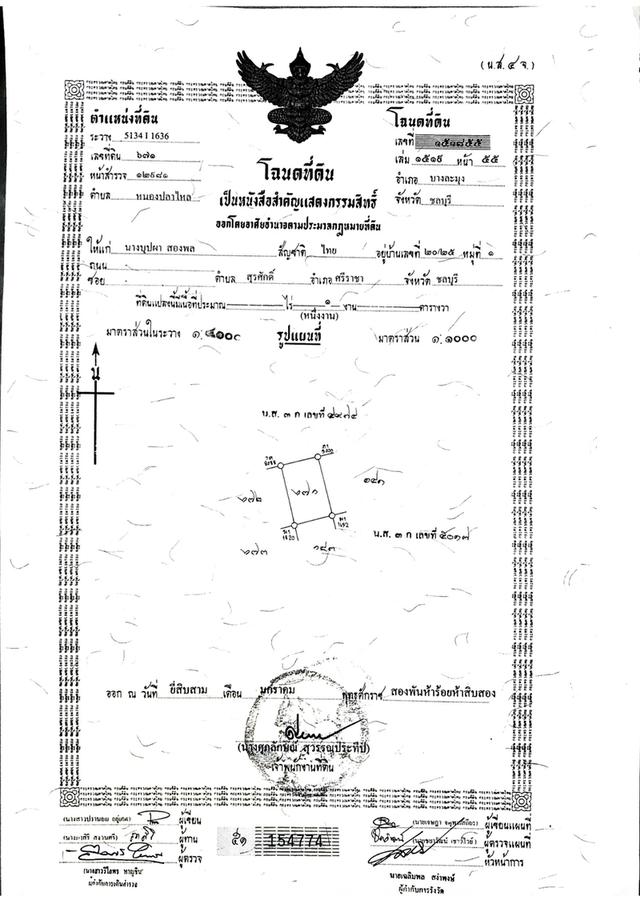 (น.ส. ๔ จ.)
ตำแหน่งที่ดิน
ระวาง 5134 I 1636
เลขที่ดิน ๒๗๑
หน้าสำรวจ ๑๒๙๘๑
ตำบล หนองปลาไหล
โฉนดที่ดิน
เลขที่ ๑๕๑๘๕๕
เล่ม ๑๕๑๙ หน้า ๕๕
อำเภอ บางละมุง
จังหวัด ชลบุรี
โฉนดที่ดิน
เป็นหนังสือสำคัญแสดงกรรมสิทธิ์
ออกโดยอาศัยอำนาจตามประมวลกฎหมายที่ดิน
ให้แก่ นางบุปผา สองพล สัญชาติ ไทย อยู่บ้านเลขที่ ๒๐/๒๕ หมู่ที่ ๑
ถนน
ซอย ตำบล สุรศักดิ์ อำเภอ ศรีราชา จังหวัด ชลบุรี
ที่ดินแปลงนี้มีเนื้อที่ประมาณ ไร่ ๑ งาน ตารางวา
(หนึ่งงาน)
มาตราส่วนในระวาง ๑:๔๐๐๐ รูปแผนที่ มาตราส่วน ๑:๑๐๐๐
น
น.ส. ๓ ก เลขที่
๒๗๑
๒๗๒
น.ส. ๓ ก เลขที่ ๕๐๑๗
๒๗๓
ออก ณ วันที่ ยี่สิบสาม เดือน มกราคม พุทธศักราช สองพันห้าร้อยห้าสิบสอง
(นางศุภลักษณ์ สุวรรณประทีป)
เจ้าพนักงานที่ดิน
ผู้เขียน
ผู้ทาน
ผู้ตรวจ
154774
ผู้เขียนแผนที่
ผู้ตรวจแผนที่
หัวหน้าการ
นายเฉลิมพล สง่าพงษ์
ผู้กำกับการรังวัด